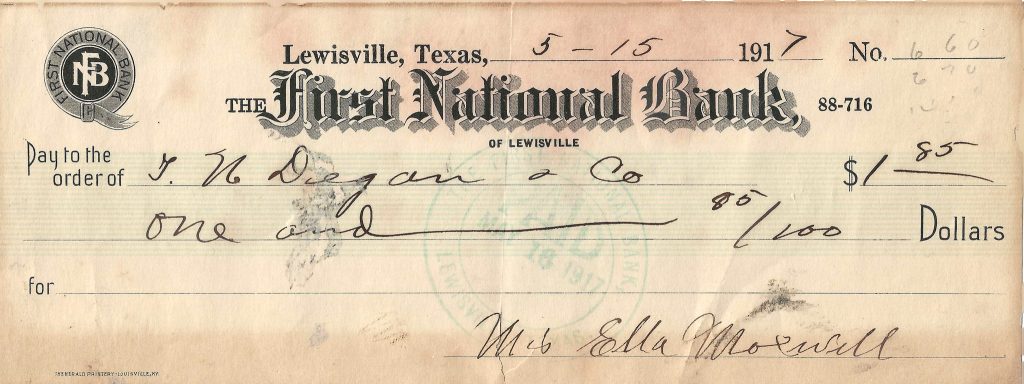 FIRST NATIONAL BANK
FNB
Lewisville, Texas, 5-15 1917 No.
THE First National Bank, 88-716
OF LEWISVILLE
Pay to the order of T. N Degan & Co $1 85
One and 85/100 Dollars
for
PAID
MAY 18 1917
LEWISVILLE
BANK
Mrs Ella Maxwell